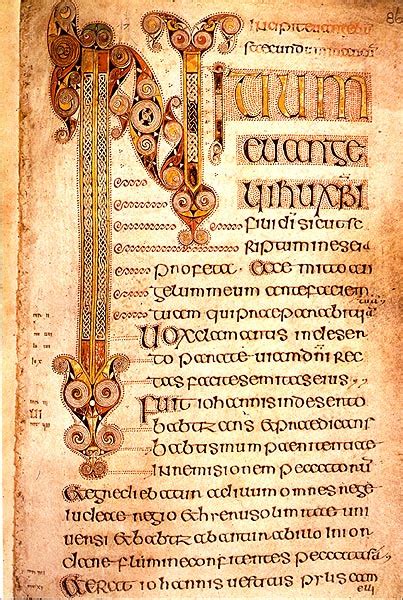 86
Incipit euangelium
secundum marcum
INITIUM
euange
lii ihu xpi
filii di sicut sc
riptum in esaia
profeta ecce mitto an
gelum meum ante faciem
tuam qui praeparabit uiā
tuā
uox clamantis in deser
to parate uiam dni rec
tas facite semitas eius
Fuit iohannis in deserto
babtizans et praedicans
babtismum paenitentiae
in remisionem peccatorū
et egrediebatur ad illum omnes
iudeae regio et hierusolimitae uni
uersi et babtizabantur ab illo in ior
dane flumine confitentes peccata sua
et erat iohannis uestitus pilis cam
eli